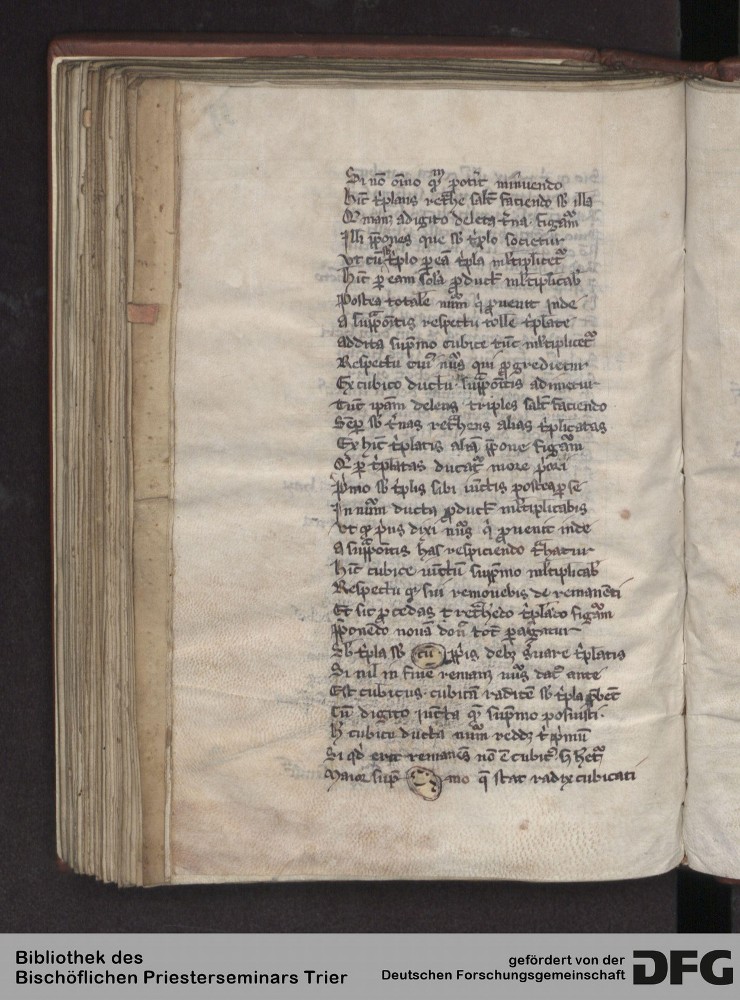 Si nõ oĩno qᷓm potit minuendo
hĩc t̃plans ret̃he salt̃ faciendo sb illa
illi p̃pones que sb t̃plo societur
ut cũ t̃plo p eã t̃pla mltiplicet᷑
hĩc p eam sola product mltiplicab
postea totale nũm q̇ puenit inde
a sup̃põitis respectu tolle t̃plate
addita sup̃mo cubice tũc mltiplicet᷑
Respectu cui᷒ nũs qui pgredietur
Ex cubico ductu sup̃põitis adimetur
tũc ip̃am delens triples salt̃ faciendo
Sẽp sb t̃nas ret̃hens alias t̃plicatas
Ex hĩc t̃platis aliã p̃pone figᷓam
Q̇ p t̃platas ducat᷑ more p̃ori
p̃mo sb t̃plis sibi iũctis postea p se
In nũm ducta product mltiplicabis
ut qᷓ p̃us dixi nũs q̇ puenit inde
a sup̃põitis has respiciendo t̃hatur
hĩc cubice iũctũ sup̃mo mltiplicab
Respectu qᷓ sui remouebis de remanẽti
Et sic pcedas t̃ ret̃hedo t̃plãdo figᷓam
p̃ponẽdo nouã donc̃ tot᷒ pagatur
Sb t̃pla sb cũ p̃pis debꝫ ẜuare t̃platis
Si nil in fine remanꝫ nũs dat᷒ ante
Est cubicus cubicã radicẽ sb t̃pla p̃bet
Cũ digito iũcta qᷓ sup̃mo posuisti.
h̄ cubice ducta nũm reddꝫ t̃ p̃mũ
Si qd̾ erit remanẽs nõ ẽ cubic᷒ ſꝫ het᷑
Maior sup̃ mo qᷓ stat radix cubicati
Bibliothek des
Bischöflichen Priesterseminars Trier
gefördert von der
Deutschen Forschungsgemeinschaft
DFG